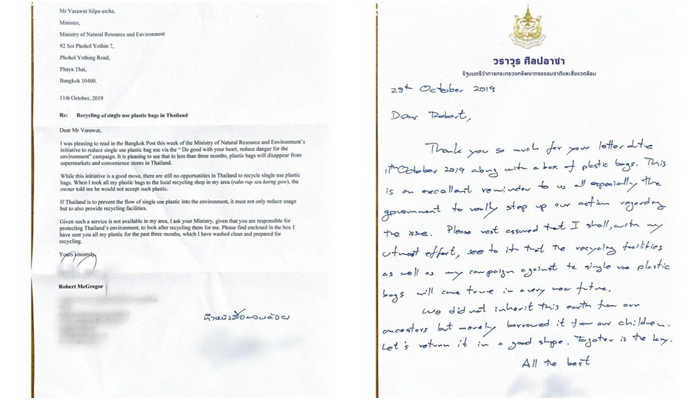 Mr Varawut Silpa-archa,
Minister,
Ministry of Natural Resource and Environment
92 Soi Phohol Yothin 7,
Phohol Yothing Road,
Phaya Thai,
Bangkok 10400.
11th October, 2019
Re: Recycling of single use plastic bags in Thailand
Dear Mr Varawut,
I was pleasing to read in the Bangkok Post this week of the Ministry of Natural Resource and Environment's
initiative to reduce single use plastic bag use via the " Do good with your heart, reduce danger for the
environment" campaign. It is pleasing to see that in less than three months, plastic bags will disappear from
supermarkets and convenience stores in Thailand.
While this initiative is a good move, there are still no opportunities in Thailand to recycle single use plastic
bags. When I took all my plastic bags to the local recycling shop in my area (rahn rap seu kong gow), the
owner told me he would not accept such plastic.
If Thailand is to prevent the flow of single use plastic into the environment, it must not only reduce usage
but to also provide recycling facilities.
Given such a service is not available in my area, I ask your Ministry, given that you are responsible for
protecting Thailand's environment, to look after recycling them for me. Please find enclosed in the box I
have sent you all my plastic for the past three months, which I have washed clean and prepared for
recycling.
Yours sincerely,
Robert McGregor
วราวุธ ศิลปอาชา
รัฐมนตรีว่าการกระทรวงทรัพยากรธรรมชาติและสิ่งแวดล้อม
October 2019
Dear Robert,
Thank you so much for your letter date
11th October 2019 along with a box of plastic bags. This
is an excellent reminder to us all especially the
government to really step up our action regarding
the issue. Please rest assured that I shall, with my
utmost effort, see to it that the recycling facilities
as well as my campaign against the single use plastic
bags will come true in a very near future.
We did not inherit this earth from our
ancestors but merely borrowed it from our children.
Let's return it in a good shape. Together is the key.
All the best